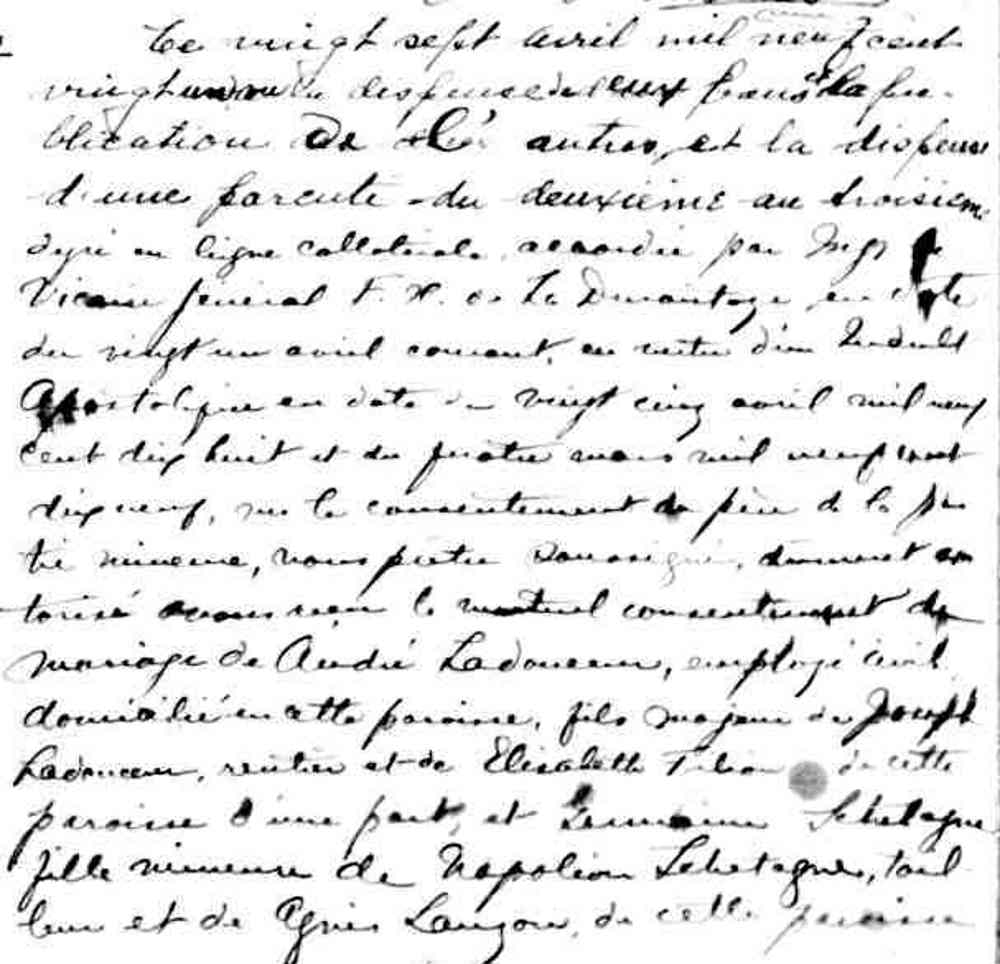 Le vingt sept avril mil neuf cent
vingt un vu la dispense de deux bans la pu-
blication de autres, et la dispense
d'une parenté du deuxième au troisième
degré en ligne collatérale accordée par Mgr le
Vicaire général F. X. de La Durantaye en date
du vingt un avril courant, en vertu d'un Indult
Apostolique en date du vingt cinq avril mil neuf
cent dix huit et du quatre mars mil neuf cent
dix neuf, vu le consentement du père de la par
tie mineure, nous prêtre soussigné, dument au
torisé avons reçu le mutuel consentement de
mariage de André Ladouceur, employé civil
domicilié en cette paroisse, fils majeur de Joseph
Ladouceur, rentier et de Elisabeth de cette
paroisse d'une part, et Germaine Letelagne
fille mineure de Napoléon Letetagne, tail
leur et de Agnès Lauzon, de cette paroisse